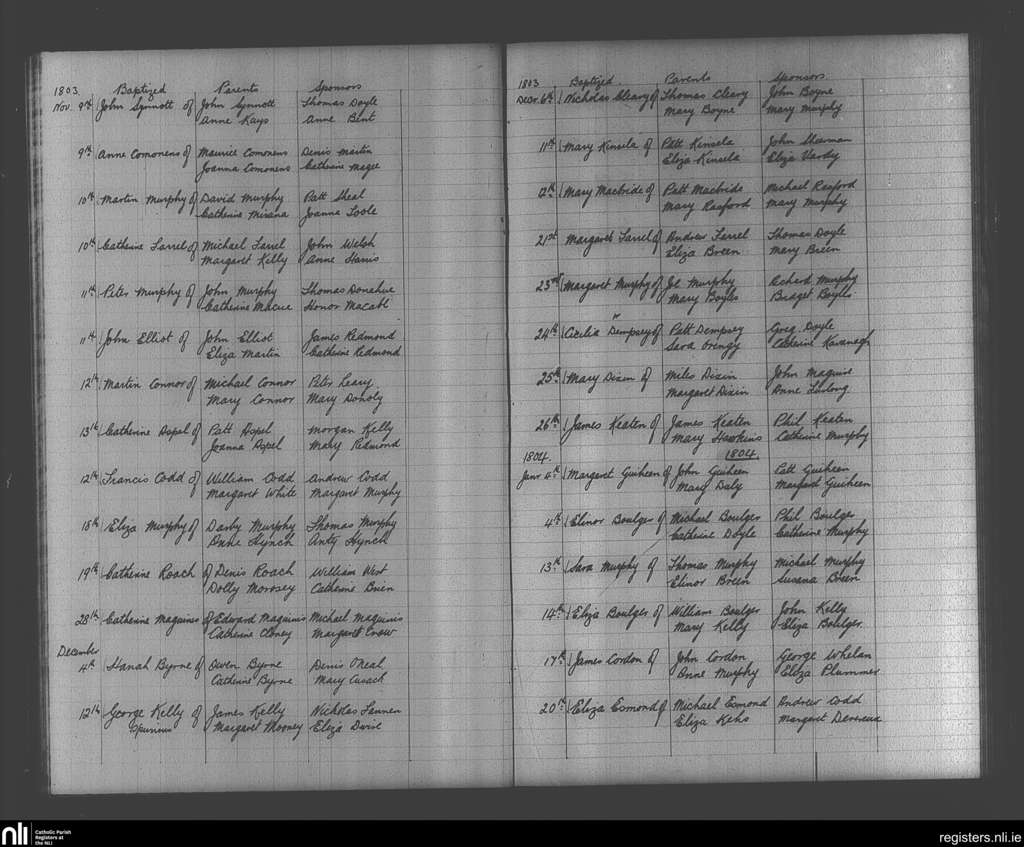 1803. Baptized Parents Sponsors
Nov. 9th John Synnott of John Synnott Thomas Doyle
Anne Kays Anne Bent
9th Anne Comonens of Maurice Comonens Denis Martin
Joanna Comonens Catherine Magee
10th Martin Murphy of David Murphy Patt Sheal
Catherine Joanna Toole
10th Catherine Farrel of Michael Farrel John Welsh
Margaret Kelly Anne Harris
11th Peter Murphy of John Murphy Thomas Donahue
Catherine Macue Honor Macabe
11th John Elliot of John Elliot James Redmond
Eliza Martin Catherine Redmond
12th Martin Connor of Michael Connor Peter Leary
Mary Connor Mary Donoly
13th Catherine Aspel of Patt Aspel Morgan Kelly
Joanna Aspel Mary Redmond
12th Francis Codd of William Codd Andrew Codd
Margaret White Margaret Murphy
18th Eliza Murphy of Darby Murphy Thomas Murphy
Anne Hynch Anty Hynch
19th Catherine Roach of Denis Roach William West
Dolly Morosey Catherine Brien
28th Catherine Maguinis of Edward Maguinis Michael Maguinis
Catherine Cloney Margaret Crow
December
4th Hanah Byrne of Owen Byrne Denis O'Neal
Catherine Byrne Mary Cusack
12th George Kelly of James Kelly Nicholas Fannen
Spurious Margaret Mooney Eliza Davis
1803 Baptized Parents Sponsors
Decr. 6th Nicholas Cleary of Thomas Cleary John Boyne
Mary Boyne Mary Murphy
11th Mary Kinsela of Patt Kinsela John Sherman
Eliza Kinsela Eliza Vardy
12th Mary Macbride of Patt Macbride Michael Rasford
Mary Rasford Mary Murphy
21st Margaret Farrel of Andrew Farrel Thomas Doyle
Eliza Breen Mary Breen
23rd Margaret Murphy of Jo. Murphy Richard Murphy
Mary Boyls Bridget Boyls
24th Cicilia Dempsey of Patt Dempsey Greg. Doyle
Sara Catherine Kavanagh
25th Mary Dixin of Miles Dixin John Maguire
Margaret Dixin Anne Furlong
26th James Keaten of James Keaten Phil Keaten
Mary Hawkins Catherine Murphy
1804. 1804.
Janr 4th Margaret Guiheen of John Guiheen Patt Guiheen
Mary Daly Margaret Guiheen
4th Elinor Boulger of Michael Boulger Phil Boulger
Catherine Doyle Catherine Murphy
13th Sara Murphy of Thomas Murphy Michael Murphy
Elinor Breen Susana Breen
14th Eliza Boulger of William Boulger John Kelly
Mary Kelly Eliza Boulger
17th James Cordon of John Cordon George Whelan
Anne Murphy Eliza Plummer
20th Eliza Esmond of Michael Esmond Andrew Codd
Eliza Kehs Margaret Devereux
nli Catholic Parish
Registers at
the NLI
registers.nli.ie